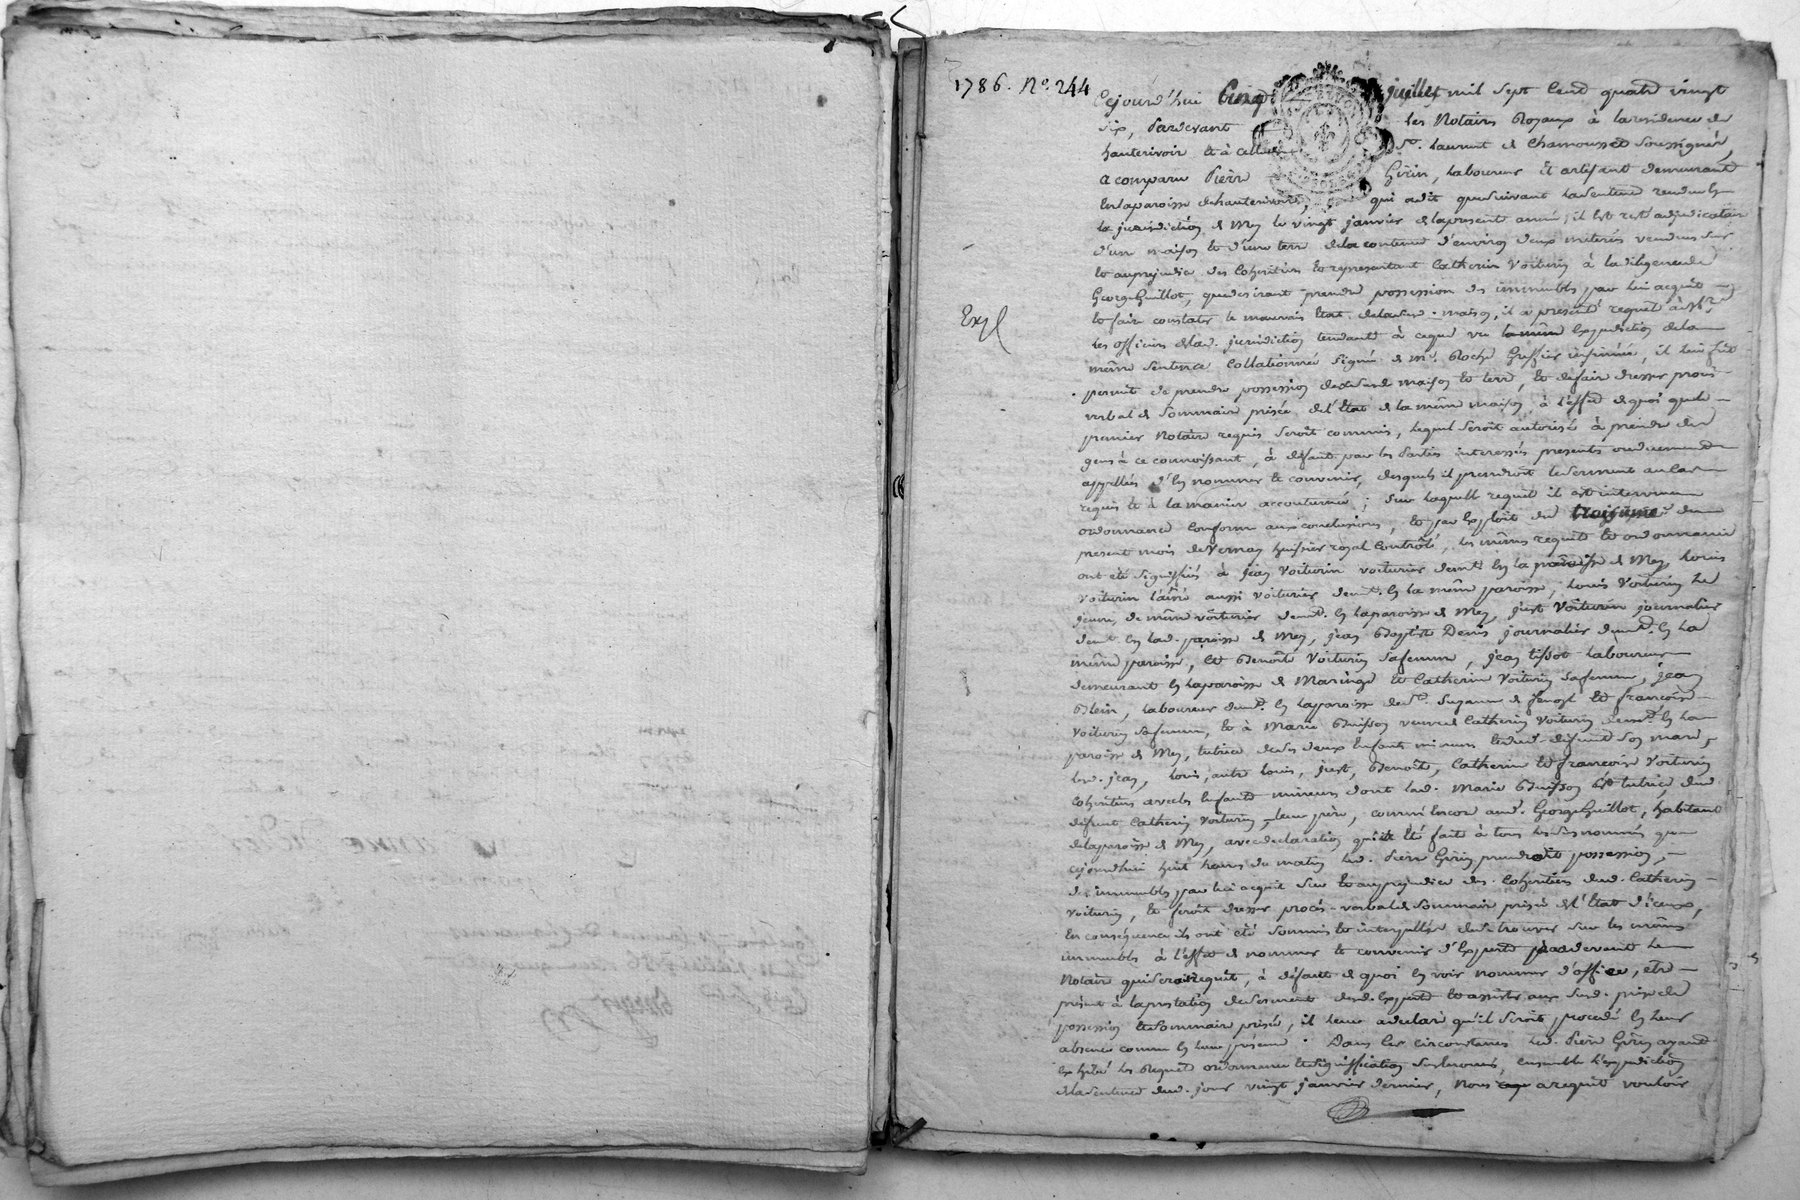 1786. N°. 244
Cejourd'hui Cinq juillet mil sept Cend quatre vingt
six, Pardevant les Notaires Royaux à la residence de
hauterivoir et à celle de St. Laurent de Chamousset Soussignés,
a comparu Pierre Girin, Laboureur et artisant demeurant
En la paroisse de hauterivoire, qui a dit que suivant la Sentence rendue En
la jurisdiction de Mey le vingt janvier de la presente année, il Est resté adjudicataire
d'une maison et d'une terre de la contenue d'environ deux meterés vendues sur
et au prejudice des Cohéritiers et representant Catherin Voiturin à la diligence de
George Guillot, que desirant prendre possession des immeubles par lui acquit
et faire constater le mauvais Etat de lad. maison, il a presenté requete à Mrs.
Les officiers de lad. jurisdiction tendante à ceque vu la même Expedition de la
même Sentence Collationnée Signée de Me. Roche Greffier insinuée, il lui fût
permit de prendre possession desdites maison et terre, et de faire dresser procés
verbal et Sommaire prisée de l'Etat de la même maison, à l'effet de quoi que le
premier Notaire requis Seroit commis, lequel Seroit autorisé à prendre des
gens à ce connoissant, à defaut par les Parties interessées presents ou duement
appellées d'En nommer et convenir, desquels il prendroit le Serment au cas
requis et à la maniere accoutumée; Sur laquelle requete il est intervenu
ordonnance Conforme aux conclusions, et par Exploit du troisieme du
present mois de Vernay huissier royal Contrôlé, les mêmes requete et ordonnance
ont été Signiffiés à jean Voiturin voiturier demt. En la paroisse de Mey, Louis
Voiturin l'ainé aussi voiturier demt. En la même paroisse, Louis Voiturin Le
jeune, de même voiturier demt. En la paroisse de Mey, just Voiturin journalier
demt. En lad. paroisse de Mey, jean Baptiste Denis journalier demt. En La
même paroisse, et Benoîte Voiturin Sa femme, jean tissot Laboureur
demeurant En la paroisse de Maringe et Catherine Voiturin Sa femme, jean
Blein, Laboureur demt. En la paroisse de Ste. et françoise
Voiturin Sa femme, et à Marie Buisson veuve de Catherin Voiturin demt. En la
paroisse de Mey, tutrice de Ses deux Enfants mineurs et dud. défunt Son mari,
Lesd. jean, Louis, autre Louis, just, Benoîte, Catherine et françoise Voiturin
Cohéritiers avec les Enfants mineurs dont lad. Marie Buisson Est tutrice, dud.
défunt Catherin Voiturin, leur père, comme Encore aud. George Guillot, habitant
de la paroisse de Mey, avec declaration qui a Eté faite à tous les Susnommés que
cejourd'hui huit heures du matin led. Pierre Girin prendroit possession,
des immeubles par lui acquit Sur et au prejudice des Cohéritiers dud. Catherin
Voiturin, et feroit dresser procés-verbal et Sommaire prisée de l'Etat d'iceux,
En conséquence ils ont été Sommés et interpellés de Se trouver Sur les mêmes
immeubles à l'effet de nommer et convenir d'Experts pardevant Le
Notaire qui Seroit requit, à défaut de quoi En voir nommer d'office, etre
présent à la prestation de Serment desd. Experts et assister aux Susd. prise de
possession et Sommaire prisée, il leur a declaré qu'il Seroit procedé En leur
absence comme En leur présence. Dans Ces circonstances led. Pierre Girin ayant
Exhibé les Requete ordonnance et Signiffication Susénoncés, ensemble l'expedition
de la Sentence dud. jour vingt janvier dernier, Nous a requit vouloir
Exp